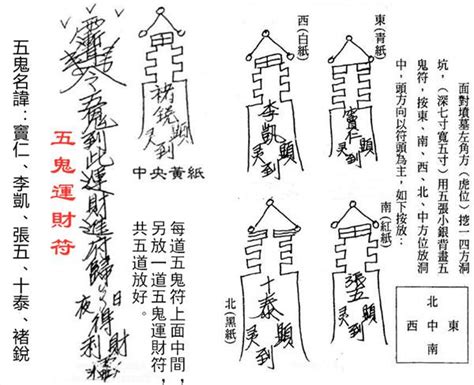 面對墳墓左角方(虎位)挖一四方
坑,(深七寸寬五寸)用五張小銀背畫五
鬼符,按東、南、西、北、中方位放洞
中,頭方向以符頭為主,如下按放:
北
西中東
南
東(青紙)
竇仁
顯
灵到
西(白紙)
李凱
顯
灵到
南(紅紙)
張五
顯
灵到
北(黑紙)
十泰
顯
灵到
褚銳
顯
灵到
中央黃紙
每道五鬼符上面中間,
另放一道五鬼運財符,
共五道放好。
令五鬼到此運財進符歸
日夜得財利
五鬼運財符
五鬼名諱:竇仁、李凱、張五、十泰、褚銳